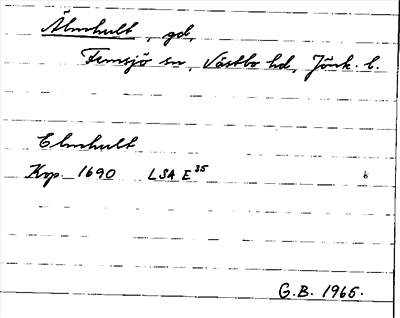 Älmhult, gd,
Femsjö sn, Västbo hd, Jönk. l.
Elmhult
Kop. 1690 LSA E 35
G.B. 1965.